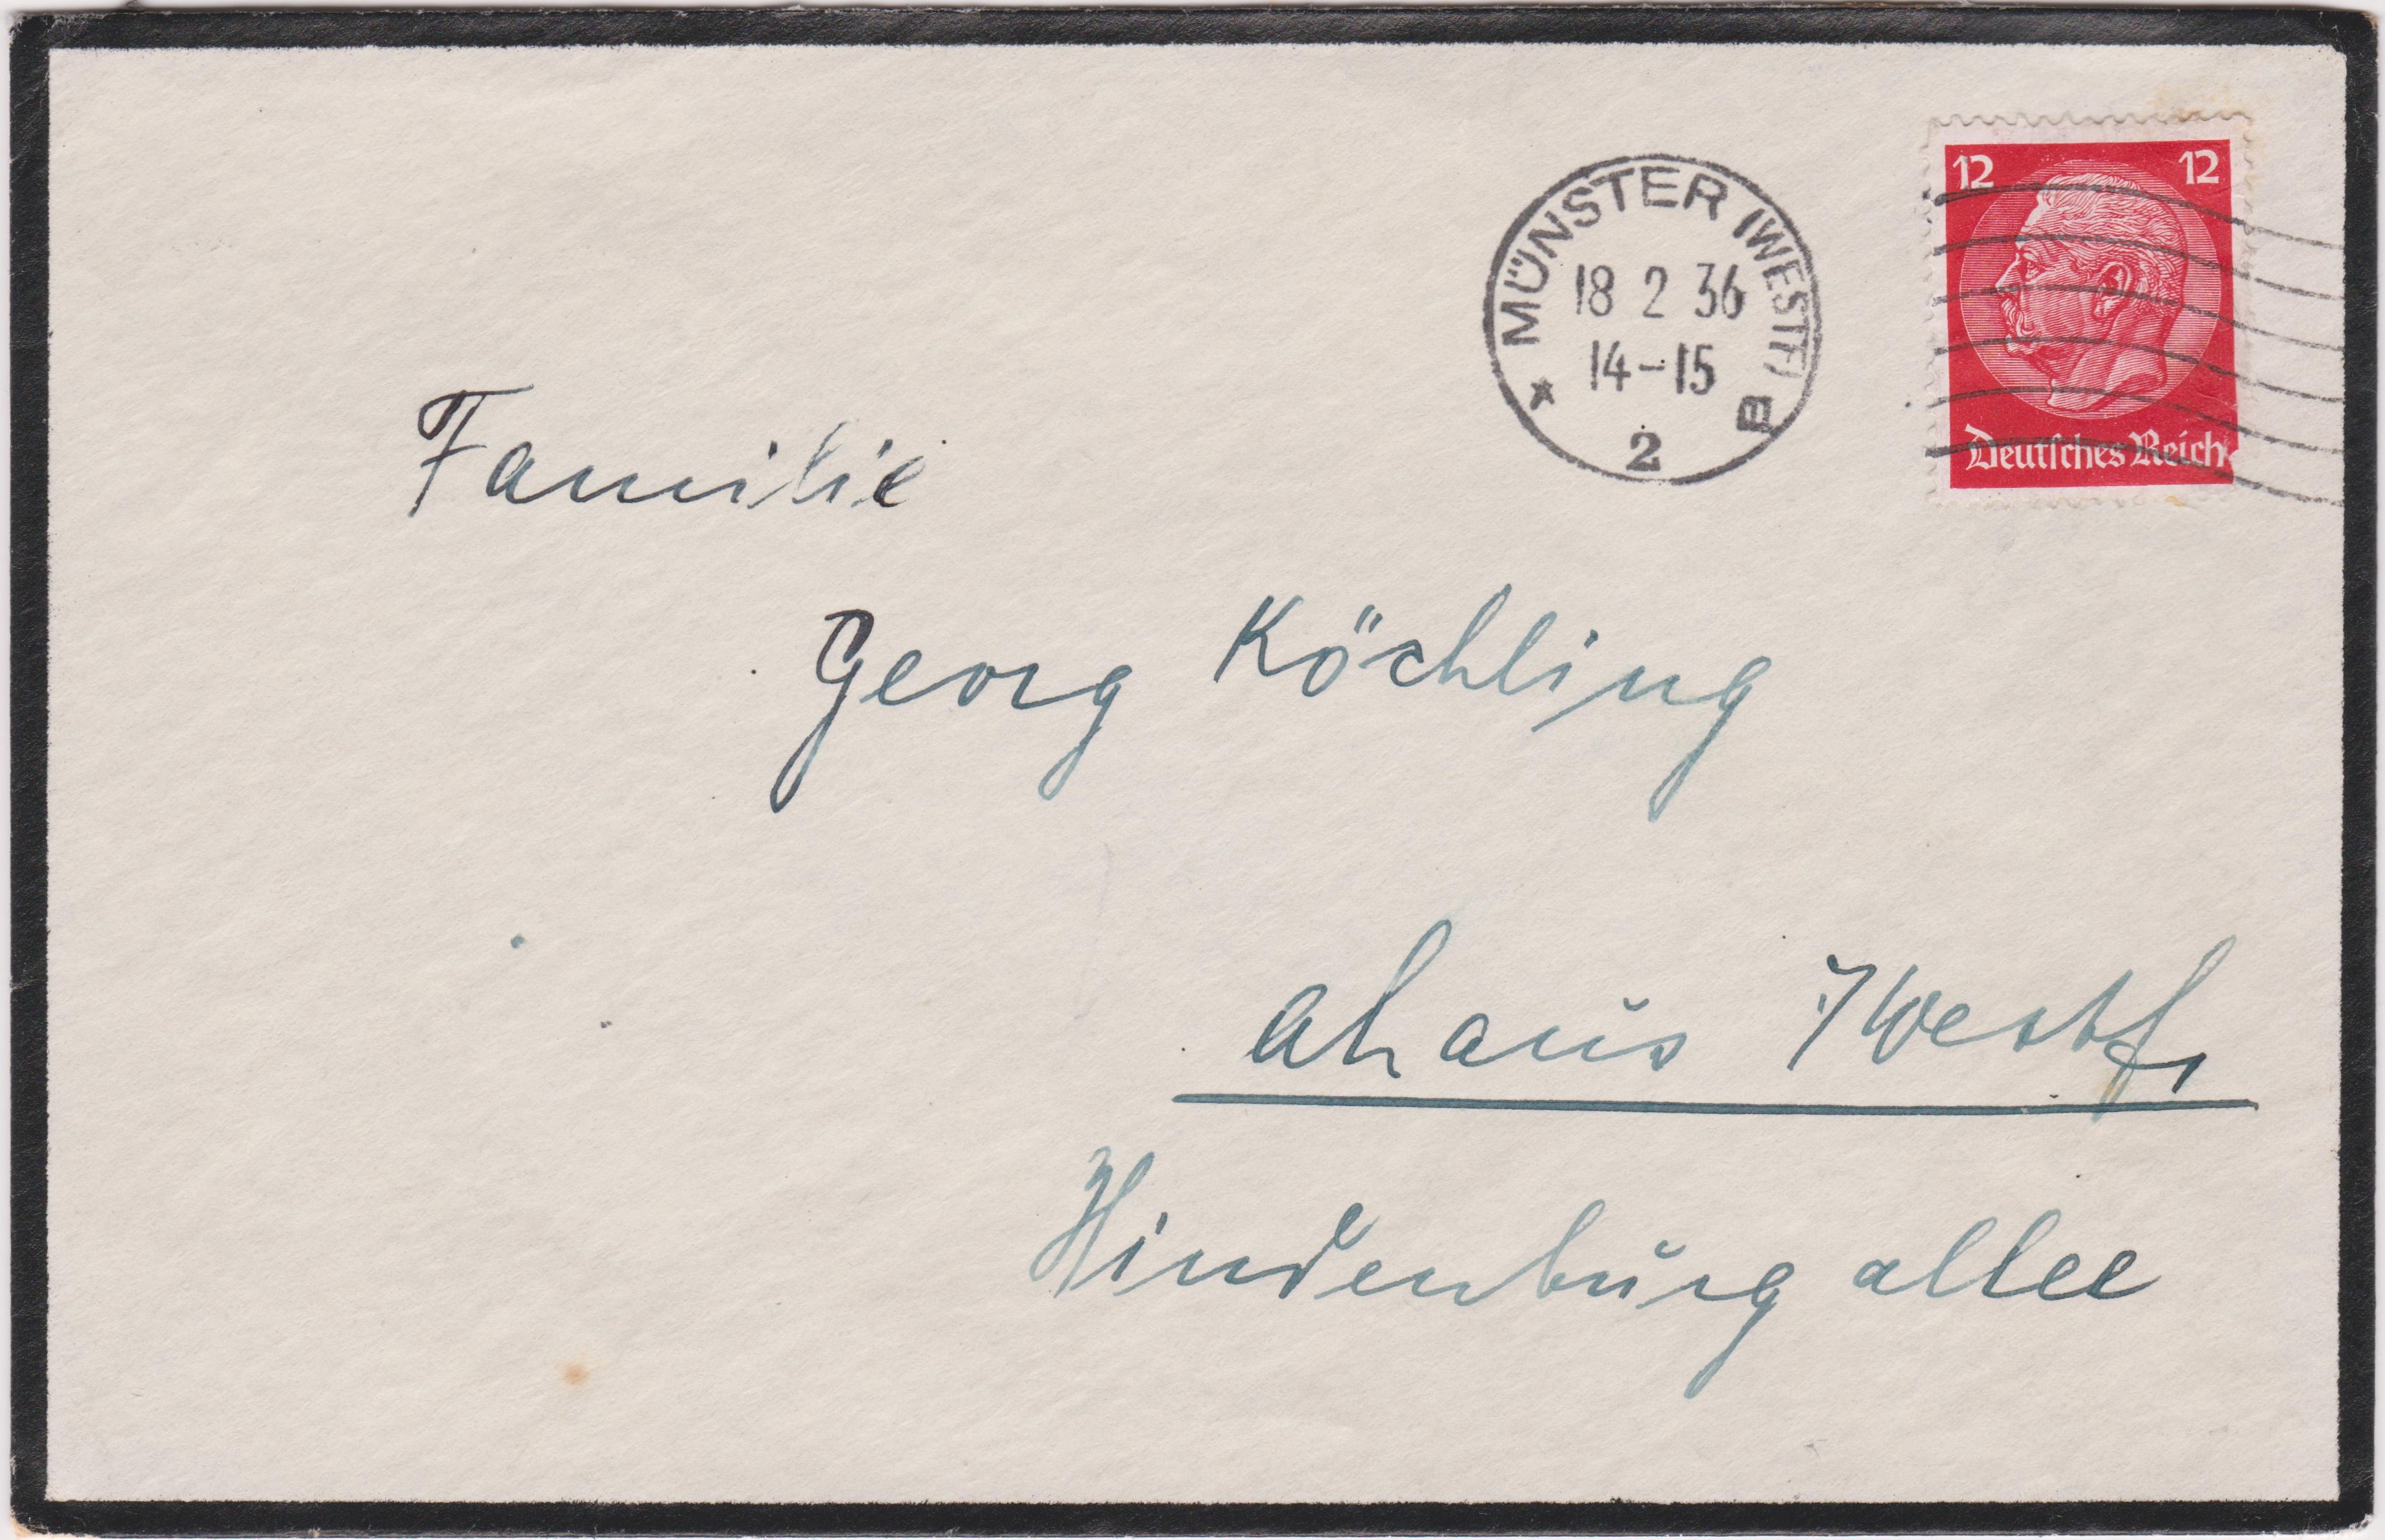 MÜNSTER (WESTF)
18 2 36
14-15
* 2 B
12 12
Deutsches Reich
Familie
Georg Köchling
Ahaus i/Westf.
Hindenburgallee